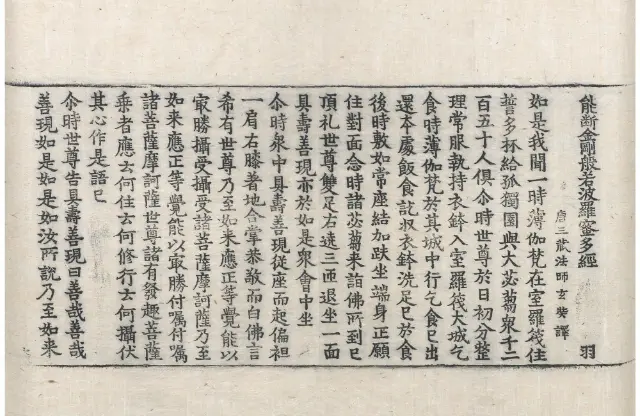 能断金剛般若波羅蜜多經 羽
唐三藏法師玄奘譯
如是我聞一時薄伽梵在室羅筏住
誓多林給孤獨園與大苾芻衆千二
百五十人俱尒時世尊於日初分整
理常服執持衣鉢入室羅筏大城乞
食時薄伽梵於其城中行乞食已出
還本處飯食訖收衣鉢洗足已於食
後時敷如常座結加趺坐端身正願
住對面念時諸苾芻来詣佛所到已
頂礼世尊雙足右遶三匝退坐一面
具壽善現亦於如是衆會中坐
尒時衆中具壽善現從座而起偏袒
一肩右膝著地合掌恭敬而白佛言
希有世尊乃至如来應正等覺能以
㝡勝攝受攝受諸菩薩摩訶薩乃至
如来應正等覺能以㝡勝付嘱付嘱
諸菩薩摩訶薩世尊諸有發趣菩薩
乗者應云何住云何修行云何攝伏
其心作是語已
尒時世尊告具壽善現曰善哉善哉
善現如是如是如汝所說乃至如来